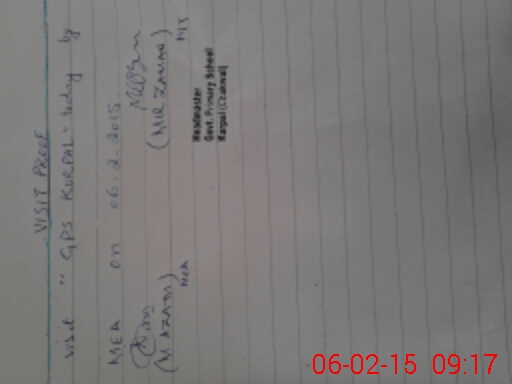 VISIT PROOF
Visit " GPS KURPAL " today by
MEA on 06.2.2015.
(M. AZAM) (MIR ZAMAN)
MEA
Headmaster
Govt. Primary School
Kurpal (Chakwal)
06-02-15 09:17